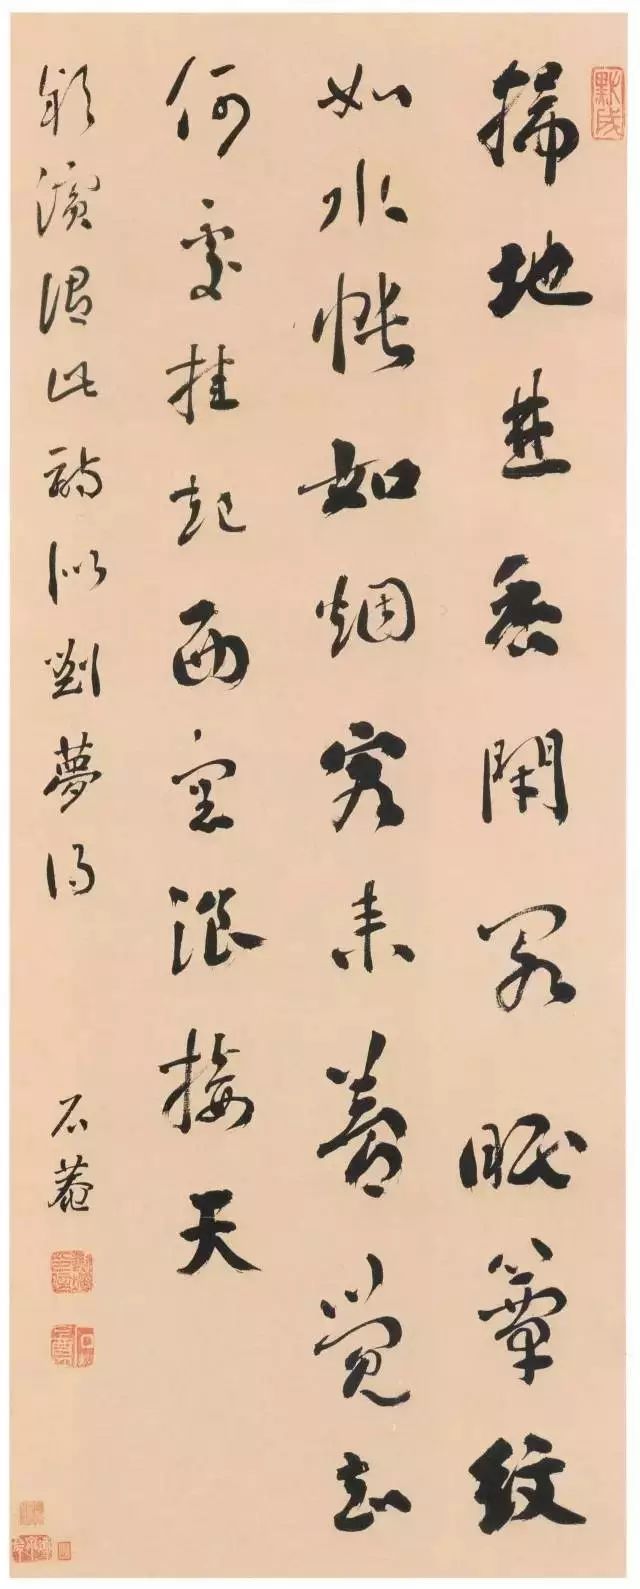 掃地焚香閉閣眠簟紋
如水帳如烟客來夢覺知
何處挂起西窗浪接天
潁濱謂此詩似劉夢得
石菴